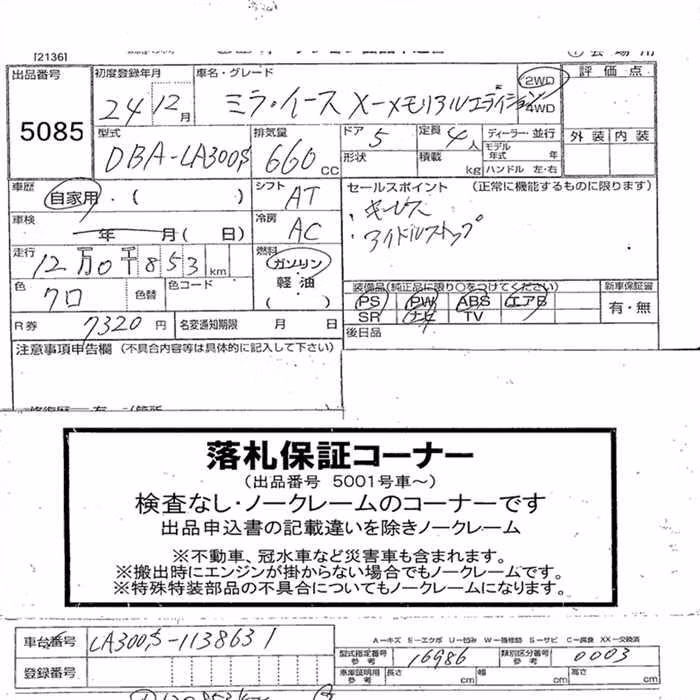 [2136]
出品番号 5085
初度登録年月 24 12月
車名・グレード ミラ・イース X-メモリアルエディション
2WD
4WD
評価点
外装 内装
型式 DBA-LA300S
排気量 660cc
ドア 5
定員 4人
形状
積載 kg
ディーラー・並行
モデル年式 年
ハンドル 左・右
車歴 自家用・( )
シフト AT
車検 年 月(日)
冷房 AC
セールスポイント (正常に機能するものに限ります)
・キーレス
・アイドルストップ
走行 12万0千853km
燃料 ガソリン・軽油
色 クロ
色替
色コード
装備品(純正品に限り○をつけてください)
PS PW ABS エアB
SR ナビ TV
新車保証書
有・無
R券 7320円
名変通知期限 月 日
後日品
注意事項申告欄 (不具合内容等は具体的に記入して下さい)
落札保証コーナー
(出品番号 5001号車~)
検査なし・ノークレームのコーナーです
出品申込書の記載違いを除きノークレーム
※不動車、冠水車など災害車も含まれます。
※搬出時にエンジンが掛からない場合でもノークレームです。
※特殊特装部品の不具合についてもノークレームになります。
車台番号 LA300S-1138631
A-キズ E-エクボ U-凹み W-補修跡 S-サビ C-腐食 XX-交換済
型式指定番号 参考 16986
類別区分番号 参考 0003
登録番号
車庫証明用 参考
長さ cm
幅 cm
高さ cm